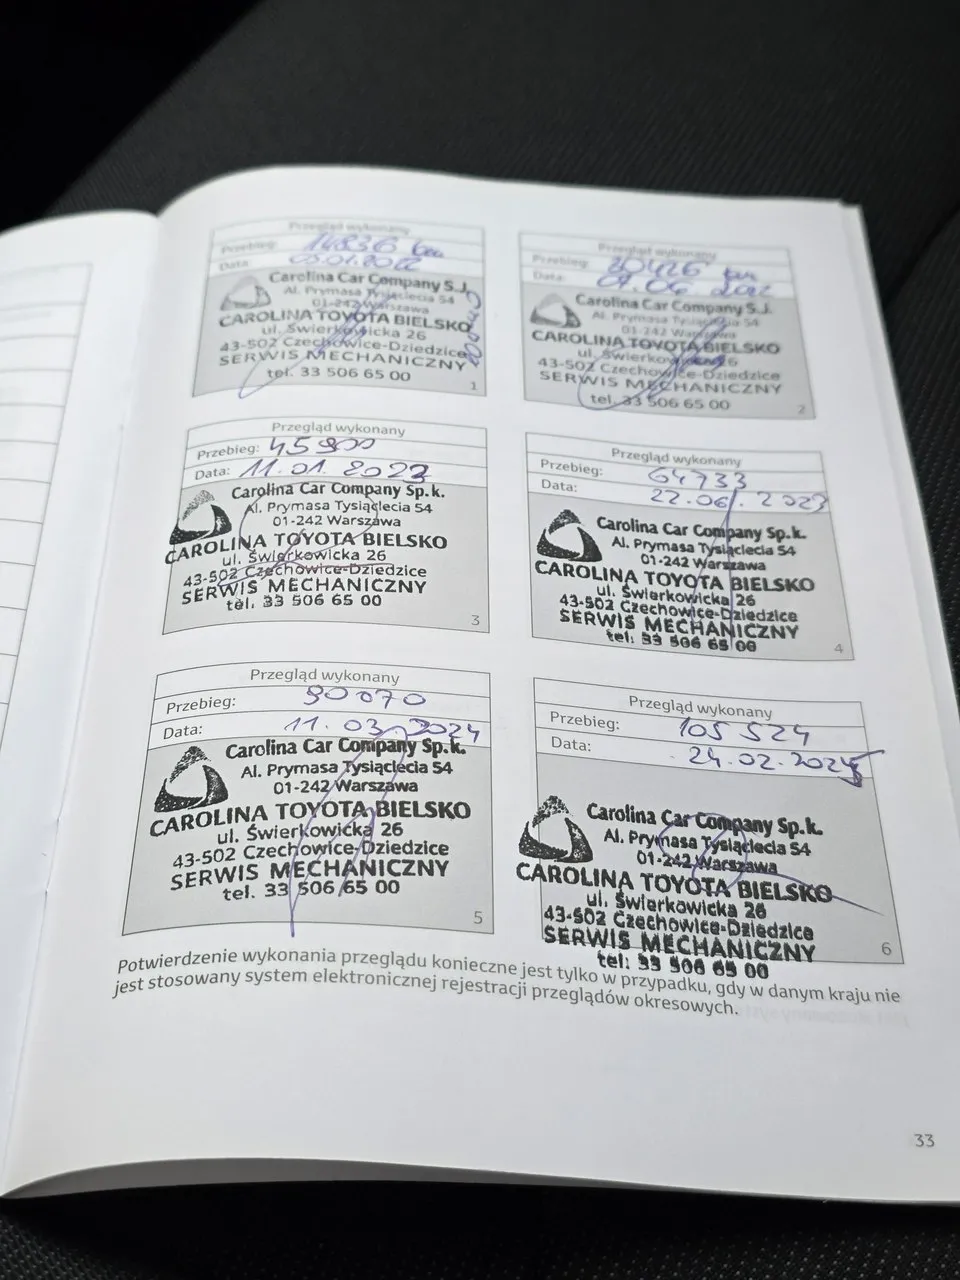 Przegląd wykonany
Przebieg: 14836 km
Data: 05.01.2022
Carolina Car Company S.J.
Al. Prymasa Tysiąclecia 54
01-242 Warszawa
CAROLINA TOYOTA BIELSKO
ul. Świerkowicka 26
43-502 Czechowice-Dziedzice
SERWIS MECHANICZNY
tel. 33 506 65 00
1
Przegląd wykonany
Przebieg: 30426 km
Data: 07.06 2022
Carolina Car Company S.J.
Al. Prymasa Tysiąclecia 54
01-242 Warszawa
CAROLINA TOYOTA BIELSKO
ul. Świerkowicka 26
43-502 Czechowice-Dziedzice
SERWIS MECHANICZNY
tel. 33 506 65 00
2
Przegląd wykonany
Przebieg: 45900
Data: 11.01.2023
Carolina Car Company Sp.k.
Al. Prymasa Tysiąclecia 54
01-242 Warszawa
CAROLINA TOYOTA BIELSKO
ul. Świerkowicka 26
43-502 Czechowice-Dziedzice
SERWIS MECHANICZNY
tel. 33 506 65 00
3
Przegląd wykonany
Przebieg: 64733
Data: 22.06.2023
Carolina Car Company Sp.k.
Al. Prymasa Tysiąclecia 54
01-242 Warszawa
CAROLINA TOYOTA BIELSKO
ul. Świerkowicka 26
43-502 Czechowice-Dziedzice
SERWIS MECHANICZNY
tel. 33 506 65 00
4
Przegląd wykonany
Przebieg: 90070
Data: 11.03.2024
Carolina Car Company Sp.k.
Al. Prymasa Tysiąclecia 54
01-242 Warszawa
CAROLINA TOYOTA BIELSKO
ul. Świerkowicka 26
43-502 Czechowice-Dziedzice
SERWIS MECHANICZNY
tel. 33 506 65 00
5
Przegląd wykonany
Przebieg: 105 524
Data: 24.02.2025
Carolina Car Company Sp.k.
Al. Prymasa Tysiąclecia 54
01-242 Warszawa
CAROLINA TOYOTA BIELSKO
ul. Świerkowicka 26
43-502 Czechowice-Dziedzice
SERWIS MECHANICZNY
tel. 33 506 65 00
6
Potwierdzenie wykonania przeglądu konieczne jest tylko w przypadku, gdy w danym kraju nie
jest stosowany system elektronicznej rejestracji przeglądów okresowych.
33